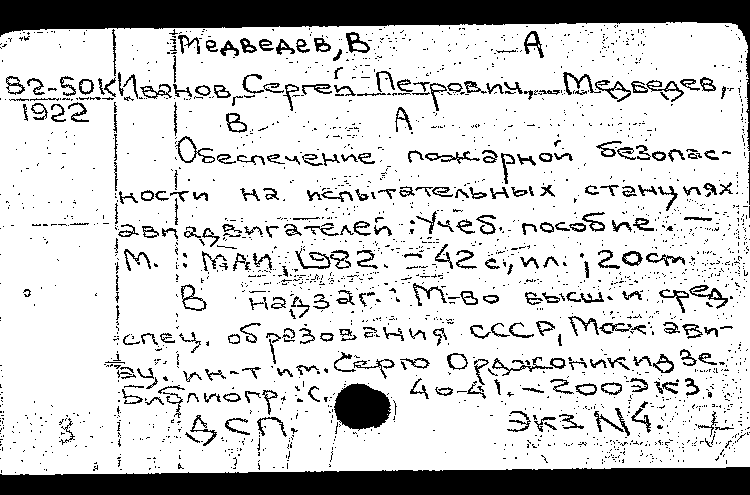 Медведев, В А
82-50К Иванов, Сергей Петрович, Медведев,
1922
В А
Обеспечение пожарной безопас-
ности на испытательных станциях
авиадвигателей : Учеб. пособие. —
М. : МАИ, 1982. - 42 с., ил. ; 20 см.
В надзаг.: М-во высш. и сред.
спец. образования СССР, Моск. ави-
ац. ин-т им. Серго Орджоникидзе.
Библиогр.: с. 40-41. - 200 экз.
ДСП. Экз N4. +